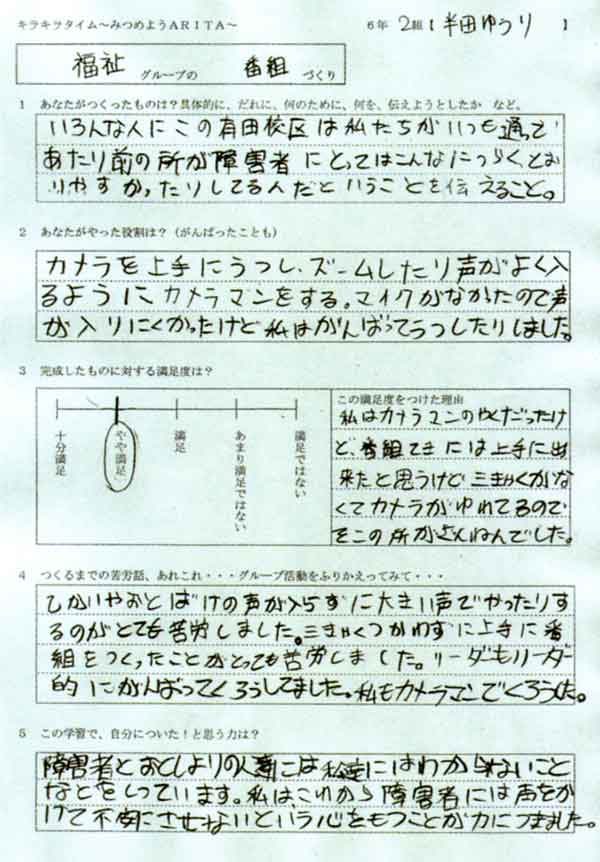 キラキラタイム～みつめようARITA～　6年 2組 【半田ゆうり】
福祉 グループの 番組 づくり
1 あなたがつくったものは？具体的に、だれに、何のために、何を、伝えようとしたか　など。
いろんな人にこの有田校区は私たちがいつも通って
あたり前の所が障害者にとってはこんなにつらくとお
りやすかったりしてる人だということを伝えること。
2 あなたがやった役割は？（がんばったことも）
カメラを上手にうつし、ズームしたり声がよく入
るようにカメラマンをする。マイクがなかたので声
が入りにくかったけど私はがんばってうつしたりしました。
3 完成したものに対する満足度は？
十分満足
やや満足
満足
あまり満足ではない
満足ではない
この満足度をつけた理由
私はカメラマンのやくだったけ
ど、番組てきには上手に出
来たと思うけど三きゃくがな
くてカメラがゆれてるので
そこの所がざんねんでした。
4 つくるまでの苦労話、あれこれ・・・グループ活動をふりかえってみて・・・
の声が入らずに大きい声でやったりす
るのがとても苦労しました。三きゃくつかわずに上手に番
組をつくったことがとっても苦労しました。リーダーもリーダー
的にがんばってくろうしてました。私もカメラマンでくろうした。
5 この学習で、自分についた！と思う力は？
障害者とおとしよりの人達には私達にはわからないこと
などをしっています。私は、これから障害者には声をか
けて不安にさせないという心をもつことが力につきました。